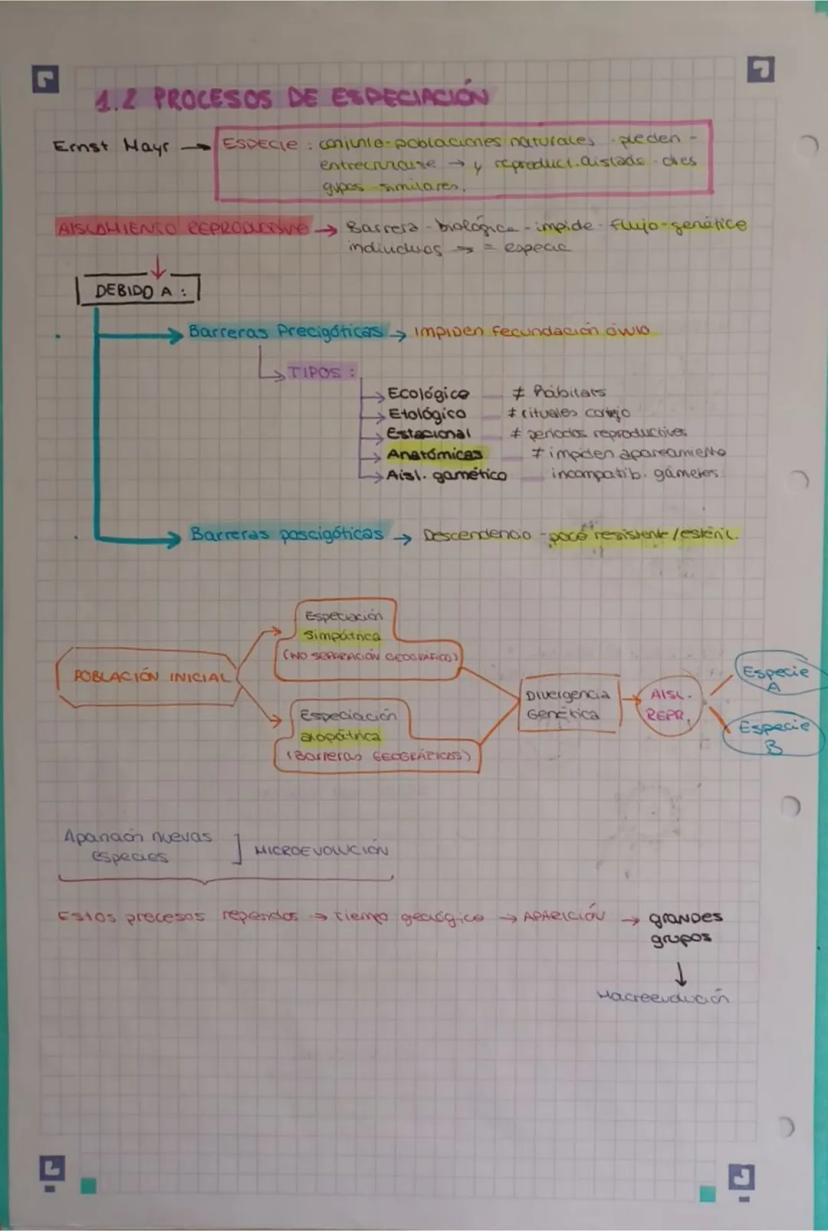 1.2 PROCESOS DE ESPECIACIÓN
Ernst Mayr → ESPECIE : conjunto-poblaciones naturales - pueden -
entrecruzarse → y reproduct. aislado - otros
grupos similares.
AISLAMIENTO REPRODUCTIVO → Barrera - biológica - impide - flujo - genético
individuos → = especie
DEBIDO A :
Barreras Precigóticas → IMPIDEN fecundación óvulo
TIPOS :
→ Ecológico ≠ hábitats
→ Etológico ≠ rituales cortejo
→ Estacional ≠ periodos reproductivos
→ Anatómicas ≠ impiden apareamiento
→ Aisl. gamético incompatib. gametos
Barreras poscigóticas → Descendencia - poco resistente / estéril.
POBLACIÓN INICIAL
Especiación
simpátrica
(NO SEPARACIÓN GEOGRÁFICO)
Especiación
alopátrica
(Barreras GEOGRÁFICAS)
Divergencia
Genética
→ AISL.
REPR.
Especie
A
Especie
B
Aparición nuevas
especies ] MICROEVOLUCIÓN
Estos procesos repetidos → Tiempo geológico → APARICIÓN → grandes
grupos
↓
Macroevolución